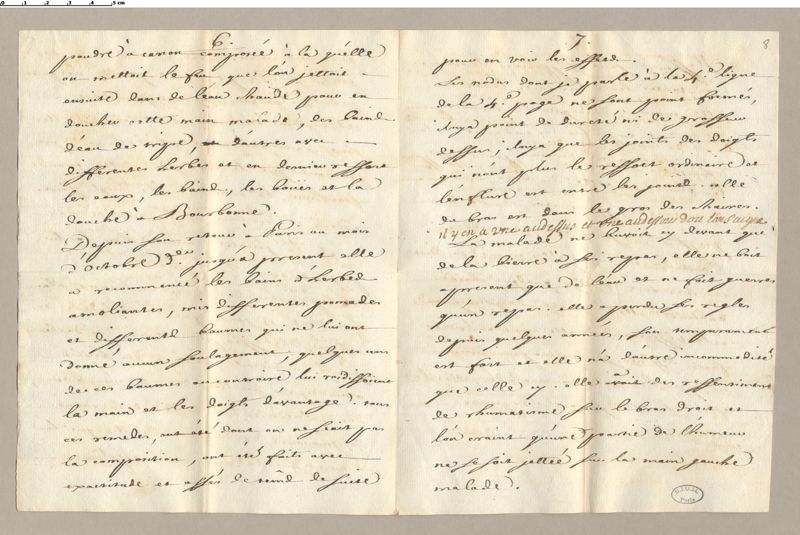 6.
poudre à canon composée à la quélle
on mettoit le feu que l'on jettoit
ensuite dans de l'eau chaude pour en
doucher cette main malade, des bains
d'eau de tripe, et d'autres avec
differentes herbes et en dernier ressort
les eaux, les bains, les boües et la
douche à Bourbonne.
Depuis son retour à Paris au mois
d'octobre jusqu'à present elle
a recommencé les bains d'herbes
amoliantes, mis differentes pomades
et differents baumes qui ne lui ont
donné aucun soulagement, quelques uns
de ces baumes au contraire lui roidissoient
la main et les doigts davantage. tous
ces remedes, ont été dont on ne sçait pas
la composition, ont été faits avec
exactitude et assés de tems de suite
7.
8
pour en voir les effets.
Les nodus dont je parle à la 4e ligne
de la 4e page ne sont point formés,
il n'y a point de dureté ni de grosseur
dessus; il n'y a que les joints des doigts
qui n'ont plus le ressort ordinaire et
l'enflure est entre les joints. celle
du bras est dans le gros des chaires.
il y en a une au dessus et une au dessous d'où l'on saigne
La malade ne buvoit cy devant que
de la bierre à ses repas, elle ne boit
apresent que de l'eau et ne fait guerres
qu'un repas. elle a perdu ses regles
depuis quelques années, son temperament
est fort et elle n'a d'autre incommodité
que celle cy. elle avoit des ressentimens
de rhumatisme sur le bras droit et
l'on craint qu'une partie de l'humeur
ne se soit jettée sur la main gauche
malade.
B.I.U.M.
Paris
0 1 2 3 4 5 cm